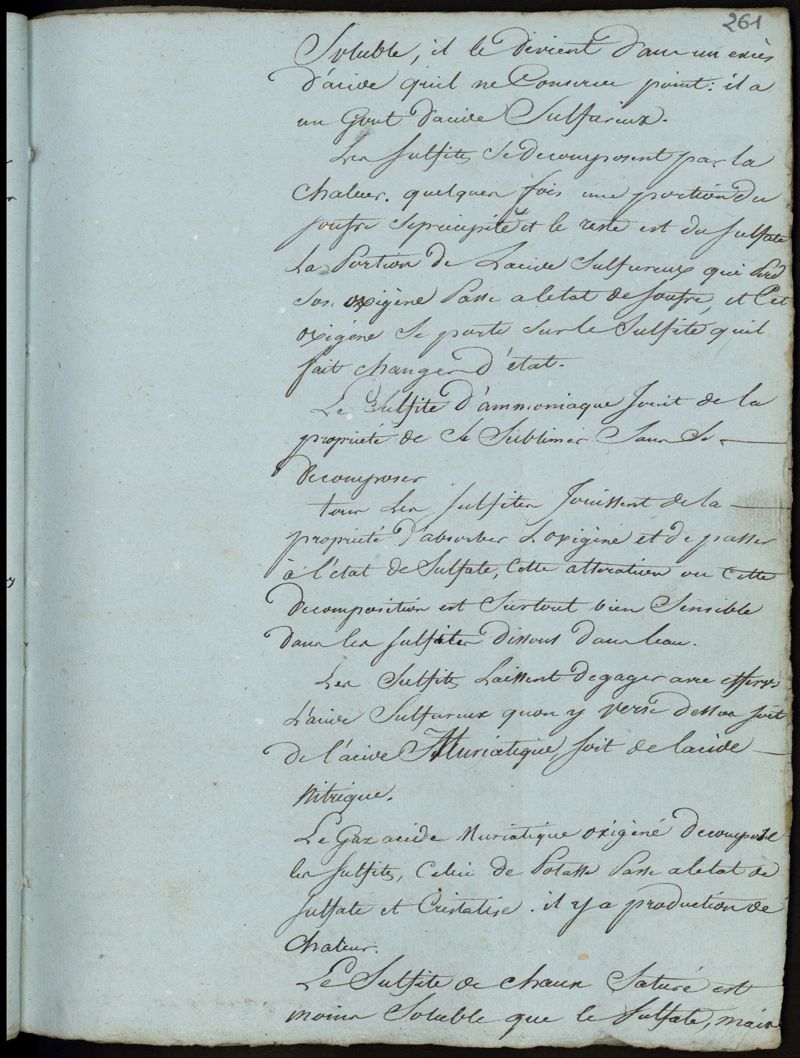 261
Soluble, il le devient dans un excès
d'acide qu'il ne Conserve point : il a
un Gout d'acide Sulfureux.
Les sulfites se decomposent par la
Chaleur. quelques fois une portion du
soufre se precipite et le reste est du sulfate
La Portion de L'acide Sulfureux qui perd
son oxigène Passe a letat de soufre, et Cet
oxigène se porte sur le Sulfite, qu'il
fait changer d'état.
Le Sulfite d'ammoniaque Jouit de la
propriété de se Sublimer Sans se
decomposer
tous Les sulfites Jouissent de la
propriété d'absorber L'oxigène et de passer
à l'état de Sulfate, cette alteration ou cette
decomposition est surtout bien Sensible
dans les sulfites dissous dans leau.
Les Sulfites Laissent degager avec efferves
L'acide Sulfureux quon y verse dessus soit
de l'acide Muriatique, soit de lacide
Nitrique.
Le Gaz acide Muriatique oxigéné decompose
les sulfites, Celui de Potasse Passe a letat de
sulfate et Cristalise. il y a production de
Chaleur.
Le Sulfite de Chaux Saturé est
moins Soluble que le sulfate, mais